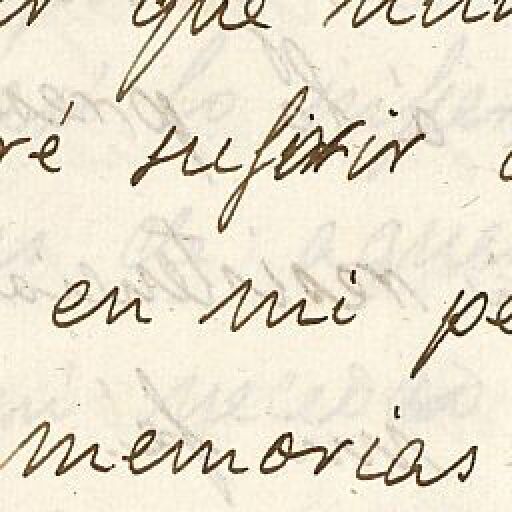 que
ré sufrir
en mi pe
memorias